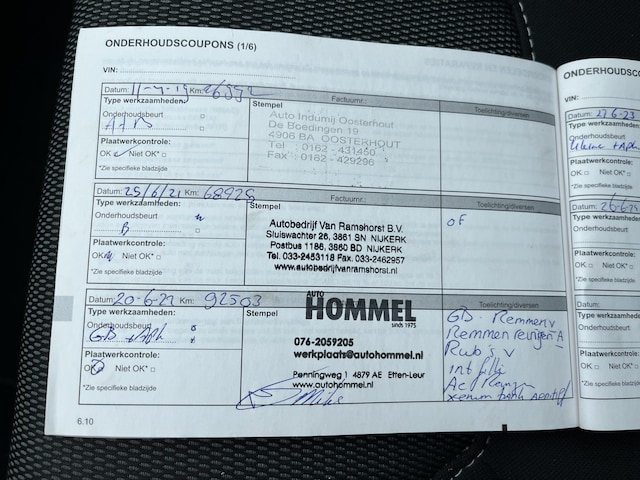 ONDERHOUDSCOUPONS (1/6)
VIN:
Datum: 11-7-19 Km:
Factuurnr.:
Toelichting/diversen
Type werkzaamheden:
Stempel
Onderhoudsbeurt
Auto Indumij Oosterhout
De Boedingen 19
4906 BA OOSTERHOUT
Tel : 0162 - 431450
Fax : 0162 - 429296
Plaatwerkcontrole:
OK Niet OK*
*Zie specifieke bladzijde
Datum: 25/6/21 Km: 68925
Factuurnr.:
Toelichting/diversen
Type werkzaamheden:
Stempel
OF
Onderhoudsbeurt
B
Autobedrijf Van Ramshorst B.V.
Sluiswachter 26, 3861 SN NIJKERK
Postbus 1186, 3860 BD NIJKERK
Tel. 033-2453118 Fax. 033-2462957
www.autobedrijfvanramshorst.nl
Plaatwerkcontrole:
OK Niet OK*
*Zie specifieke bladzijde
Datum: 20-6-22 Km: 92503
Toelichting/diversen
Type werkzaamheden:
Stempel
Onderhoudsbeurt
GB + Aph
AUTO
HOMMEL
sinds 1975
076-2059205
werkplaats@autohommel.nl
Penningweg 1 4879 AE Etten-Leur
www.autohommel.nl
Plaatwerkcontrole:
OK Niet OK*
*Zie specifieke bladzijde
GB Remmen
Remmen reinigen A
6.10
ONDERHOUDSCOUPONS
VIN:
Datum: 27-6-23
Type werkzaamheden:
Onderhoudsbeurt
Kleine + Aph
Plaatwerkcontrole:
OK Niet OK*
*Zie specifieke bladzijde
Datum:
Type werkzaamheden:
Onderhoudsbeurt
Plaatwerkcontrole:
OK Niet OK*
*Zie specifieke bladzijde
Datum:
Type werkzaamheden:
Onderhoudsbeurt
Plaatwerkcontrole:
OK Niet OK*
*Zie specifieke bladzijde